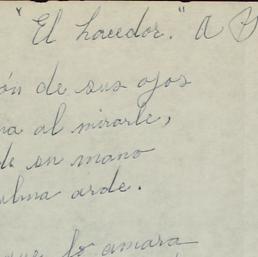 "El hacedor." A
ón de sus ojos
na al mirarle,
de su mano
alma arde.
que lo amara